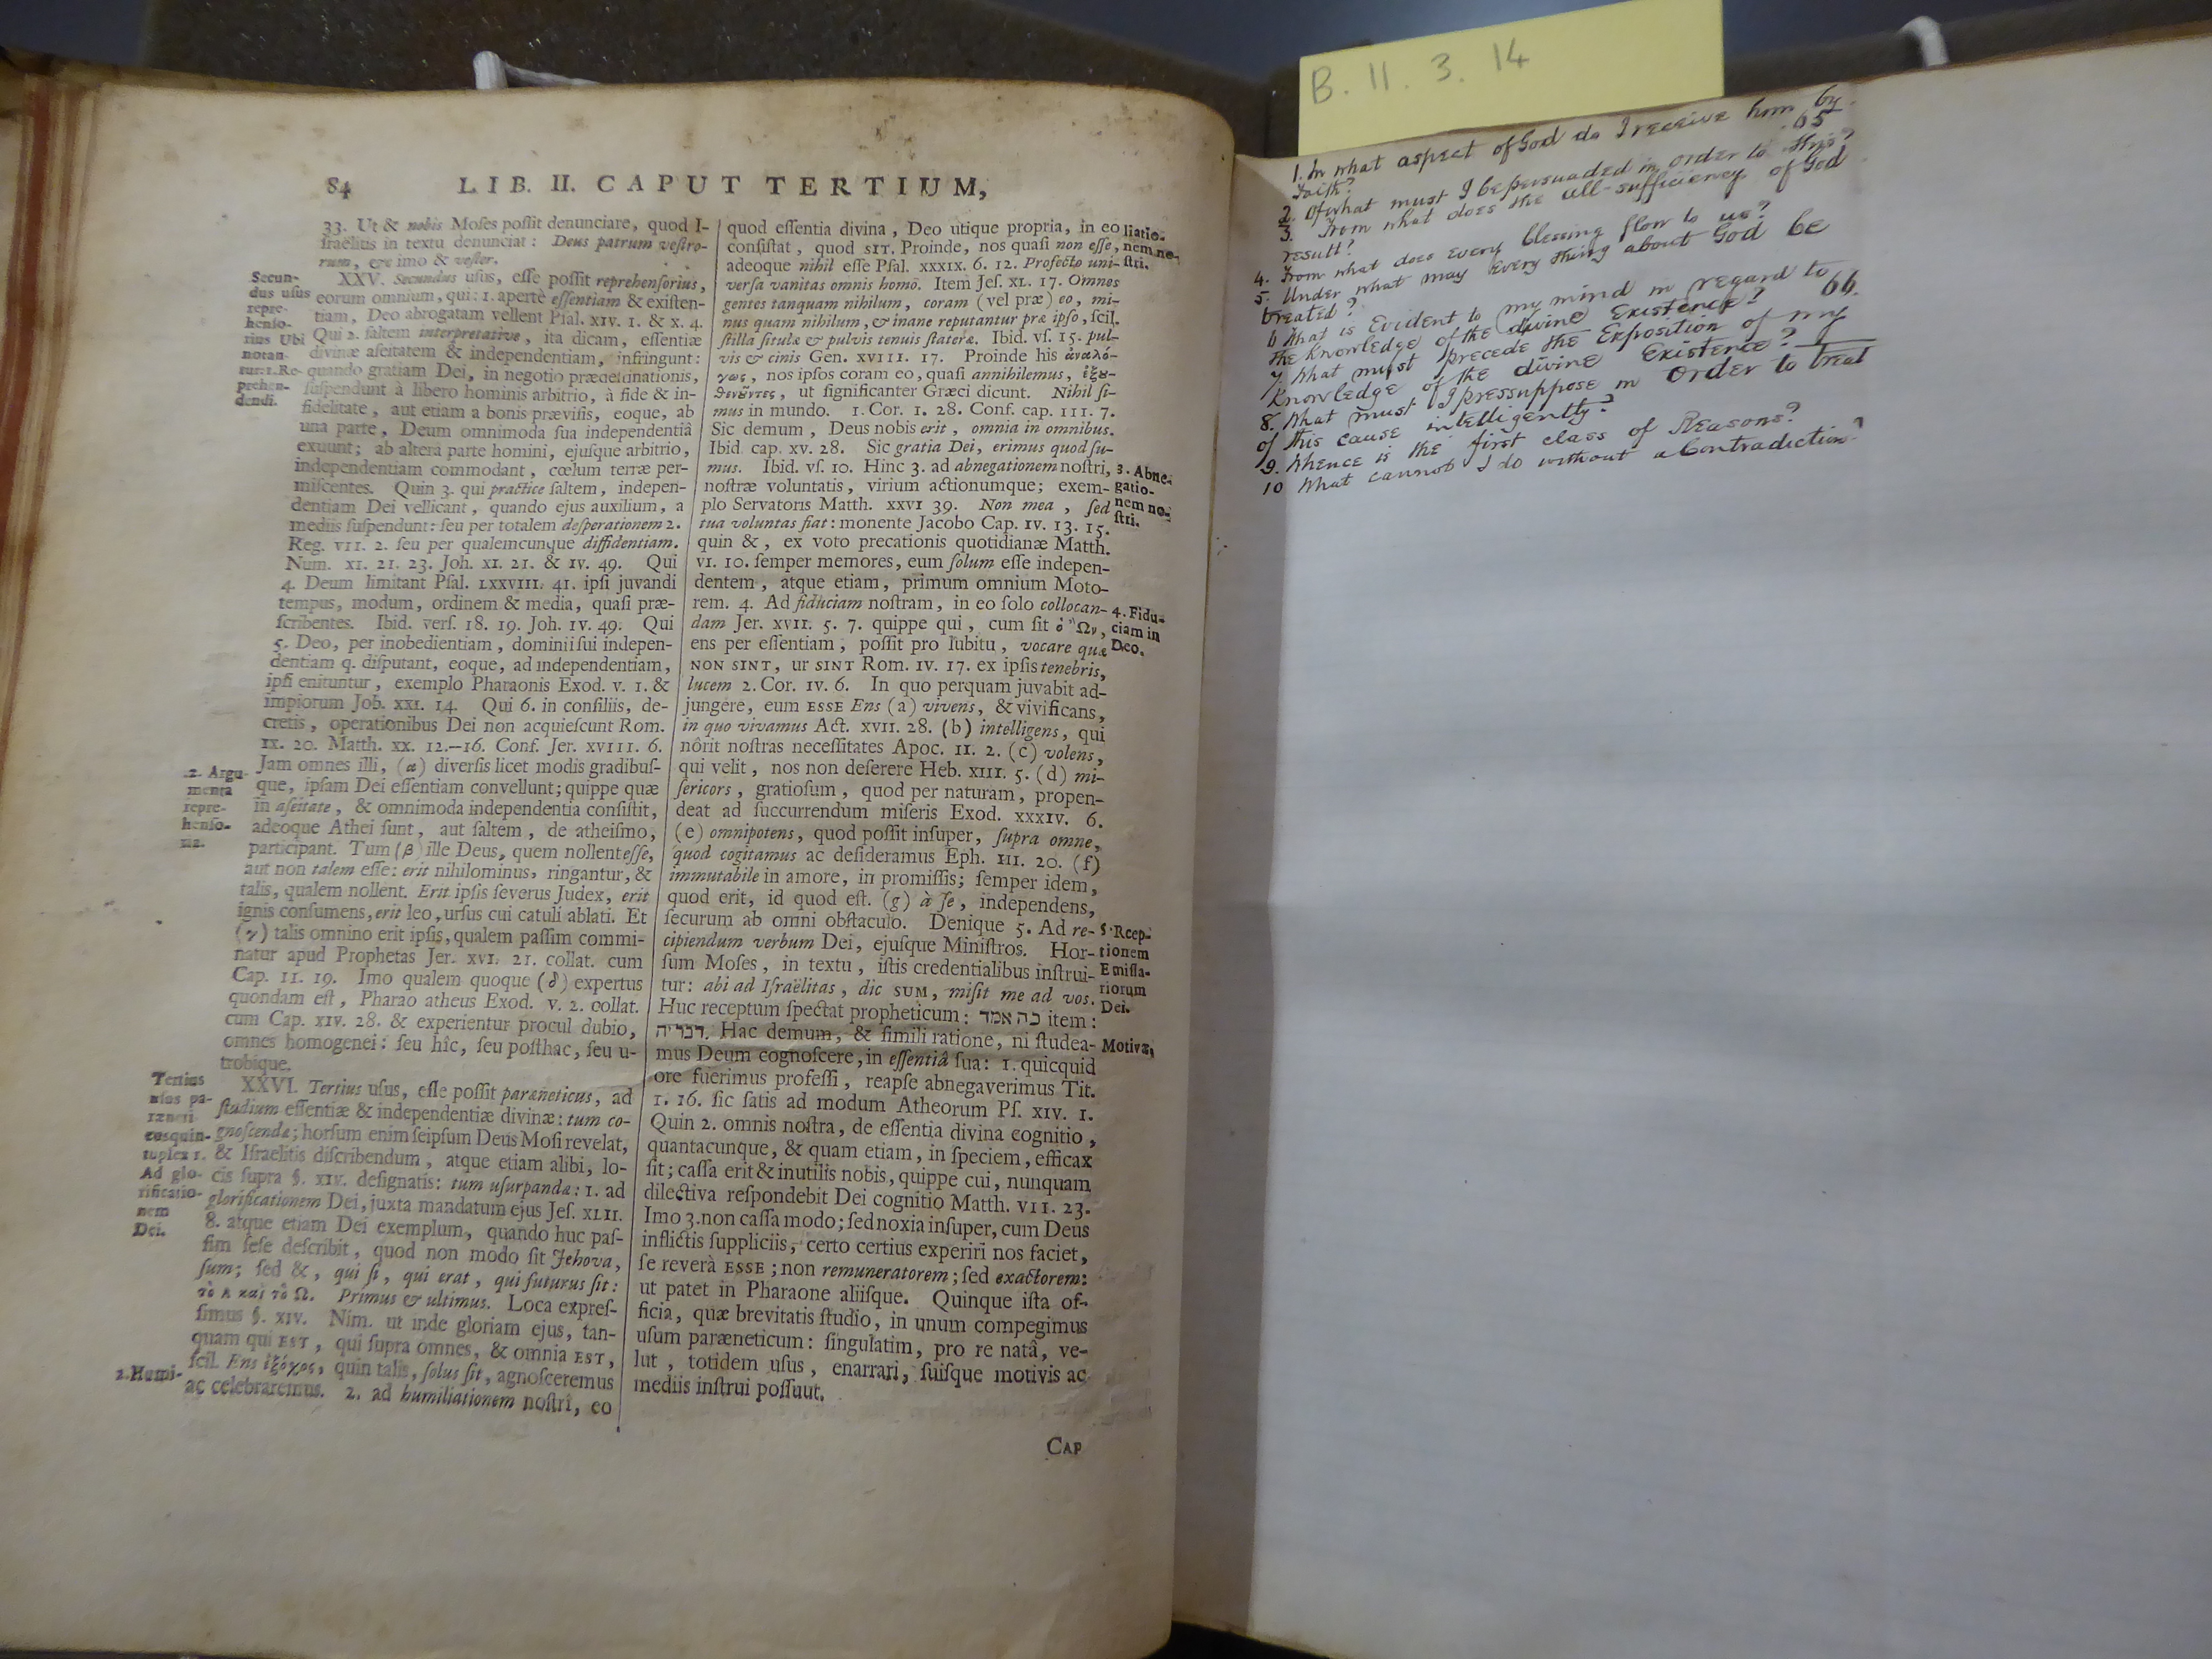 84 LIB. II. CAPUT TERTIUM,
33. Ut & nobis Moſes poſſit denunciare, quod I-
ſraëlitis in textu denunciat: Deus patrum veſtro-
rum, &c imo & veſter.
Secun-
dus uſus
repre-
henſo-
rius Ubi
notan-
tur: 1. Re-
prehen-
dendi.
XXV. Secundus uſus, eſſe poſſit reprehenſorius,
eorum omnium, qui: 1. apertè eſſentiam & exiſten-
tiam, Deo abrogatam vellent Pſal. XIV. 1. & X. 4.
Qui 2. ſaltem interpretative, ita dicam, eſſentiæ
divinæ aſeitatem & independentiam, infringunt:
quando gratiam Dei, in negotio prædeſtinationis,
ſuſpendunt à libero hominis arbitrio, à fide & in-
fidelitate, aut etiam a bonis præviſis, eoque, ab
una parte, Deum omnimoda ſua independentiâ
exuunt; ab altera parte homini, ejuſque arbitrio,
independentiam commodant, cœlum terræ per-
miſcentes. Quin 3. qui practice ſaltem, indepen-
dentiam Dei vellicant, quando ejus auxilium, a
mediis ſuſpendunt: ſeu per totalem deſperationem 2.
Reg. VII. 2. ſeu per qualemcunque diffidentiam.
Num. XI. 21. 23. Joh. XI. 21. & IV. 49. Qui
4. Deum limitant Pſal. LXXVIII. 41. ipſi juvandi
tempus, modum, ordinem & media, quaſi præ-
ſcribentes. Ibid. verſ. 18. 19. Joh. IV. 49. Qui
5. Deo, per inobedientiam, dominii ſui indepen-
dentiam q. diſputant, eoque, ad independentiam,
ipſi enituntur, exemplo Pharaonis Exod. V. 1. &
impiorum Job. XXI. 14. Qui 6. in conſiliis, de-
cretis, operationibus Dei non acquieſcunt Rom.
IX. 20. Matth. XX. 12.—16. Conf. Jer. XVIII. 6.
2. Argu-
menta
repre-
henſo-
ria.
Jam omnes illi, (α) diverſis licet modis gradibuſ-
que, ipſam Dei eſſentiam convellunt; quippe quæ
in aſeitate, & omnimoda independentia conſiſtit,
adeoque Athei ſunt, aut ſaltem, de atheiſmo,
participant. Tum (β) ille Deus, quem nollent eſſe,
aut non talem eſſe: erit nihilominus, ringantur, &
talis, qualem nollent. Erit ipſis ſeverus Judex, erit
ignis conſumens, erit leo, urſus cui catuli ablati. Et
(γ) talis omnino erit ipſis, qualem paſſim commi-
natur apud Prophetas Jer. XVI. 21. collat. cum
Cap. II. 19. Imo qualem quoque (δ) expertus
quondam eſt, Pharao atheus Exod. V. 2. collat.
cum Cap. XIV. 28. & experientur procul dubio,
omnes homogenei: ſeu hîc, ſeu poſthac, ſeu u-
trobique.
Tertius
uſus pa-
ræneti-
cus quin-
tuplex 1.
Ad glo-
rificatio-
nem
Dei.
XXVI. Tertius uſus, eſſe poſſit paræneticus, ad
ſtudium eſſentiæ & independentiæ divinæ: tum co-
gnoſcendæ; horſum enim ſeipſum Deus Moſi revelat,
& Iſraëlitis diſcribendum, atque etiam alibi, lo-
cis ſupra §. XIV. deſignatis: tum uſurpandæ: 1. ad
glorificationem Dei, juxta mandatum ejus Jeſ. XLII.
8. atque etiam Dei exemplum, quando huc paſ-
ſim ſeſe deſcribit, quod non modo ſit Jehova,
ſum; ſed &, qui ſi, qui erat, qui futurus ſit:
τὸ Α καὶ τὸ Ω. Primus & ultimus. Loca expreſ-
ſimus §. XIV. Nim. ut inde gloriam ejus, tan-
quam qui EST, qui ſupra omnes, & omnia EST,
ſcil. Ens ἐξόχος, quin talis, ſolus ſit, agnoſceremus
2. Humi-
ac celebraremus. 2. ad humiliationem noſtrî, eo
quod eſſentia divina, Deo utique propria, in eo
conſiſtat, quod SIT. Proinde, nos quaſi non eſſe,
adeoque nihil eſſe Pſal. XXXIX. 6. 12. Profecto uni-
verſa vanitas omnis homo. Item Jeſ. XL. 17. Omnes
gentes tanquam nihilum, coram (vel præ) eo, mi-
nus quam nihilum, & inane reputantur præ ipſo, ſcil.
ſtilla ſitulæ & pulvis tenuis ſtateræ. Ibid. vſ. 15. pul-
vis & cinis Gen. XVIII. 17. Proinde his ἀναλό-
γως, nos ipſos coram eo, quaſi annihilemus, ἐξου-
θενοῦντες, ut ſignificanter Græci dicunt. Nihil ſi-
mus in mundo. 1. Cor. I. 28. Conf. cap. III. 7.
Sic demum, Deus nobis erit, omnia in omnibus.
Ibid. cap. XV. 28. Sic gratia Dei, erimus quod ſu-
mus. Ibid. vſ. 10. Hinc 3. ad abnegationem noſtri,
noſtræ voluntatis, virium actionumque; exem-
plo Servatoris Matth. XXVI 39. Non mea, ſed
tua voluntas fiat: monente Jacobo Cap. IV. 13. 15.
quin &, ex voto precationis quotidianæ Matth.
VI. 10. ſemper memores, eum ſolum eſſe indepen-
dentem, atque etiam, primum omnium Moto-
rem. 4. Ad fiduciam noſtram, in eo ſolo collocan-
dam Jer. XVII. 5. 7. quippe qui, cum ſit ὁ Ὢν,
ens per eſſentiam, poſſit pro lubitu, vocare quæ
NON SINT, ur SINT Rom. IV. 17. ex ipſis tenebris,
lucem 2. Cor. IV. 6. In quo perquam juvabit ad-
jungere, eum ESSE Ens (a) vivens, & vivificans,
in quo vivamus Act. XVII. 28. (b) intelligens, qui
nôrit noſtras neceſſitates Apoc. II. 2. (c) volens,
qui velit, nos non deſerere Heb. XIII. 5. (d) mi-
ſericors, gratioſum, quod per naturam, propen-
deat ad ſuccurrendum miſeris Exod. XXXIV. 6.
(e) omnipotens, quod poſſit inſuper, ſupra omne,
quod cogitamus ac deſideramus Eph. III. 20. (f)
immutabile in amore, in promiſſis; ſemper idem,
quod erit, id quod eſt. (g) à ſe, independens,
ſecurum ab omni obſtaculo. Denique 5. Ad re-
cipiendum verbum Dei, ejuſque Miniſtros. Hor-
ſum Moſes, in textu, iſtis credentialibus inſtrui-
tur: abi ad Iſraëlitas, dic SUM, miſit me ad vos.
Huc receptum ſpectat propheticum: כה אמר item:
דבריה. Hac demum, & ſimili ratione, ni ſtudea-
mus Deum cognoſcere, in eſſentiâ ſua: 1. quicquid
ore fuerimus profeſſi, reapſe abnegaverimus Tit.
I. 16. ſic ſatis ad modum Atheorum Pſ. XIV. 1.
Quin 2. omnis noſtra, de eſſentia divina cognitio,
quantacunque, & quam etiam, in ſpeciem, efficax
ſit; caſſa erit & inutilis nobis, quippe cui, nunquam
dilectiva reſpondebit Dei cognitio Matth. VII. 23.
Imo 3. non caſſa modo; ſed noxia inſuper, cum Deus
inflictis ſuppliciis, certo certius experiri nos faciet,
ſe reverà ESSE; non remuneratorem; ſed exactorem:
ut patet in Pharaone aliiſque. Quinque iſta of-
ficia, quæ brevitatis ſtudio, in unum compegimus
uſum paræneticum: ſingulatim, pro re natâ, ve-
lut, totidem uſus, enarrari, ſuiſque motivis ac
mediis inſtrui poſſuut.
liatio-
nem no-
ſtri.
3. Abne-
gatio-
nem no-
ſtri.
4. Fidu-
ciam in
Deo.
5. Rcep-
tionem
Emiſſa-
riorum
Dei.
Motivæ,
CAP
B. 11. 3. 14
1. In what aspect of God do I receive him by
Faith? 65
2. Of what must I be persuaded in order to this?
3. From what does the all-sufficiency of God
result?
4. From what does every blessing flow to us?
5. Under what may every thing about God be
treated?
6 What is Evident to my mind in regard to
the Knowledge of the divine Existence? 66.
7. What must precede the Exposition of my
Knowledge of the divine Existence?
8. What must I pressuppose in order to treat
of this cause intelligently?
9. Whence is the first class of Reasons?
10 What cannot I do without a Contradiction?